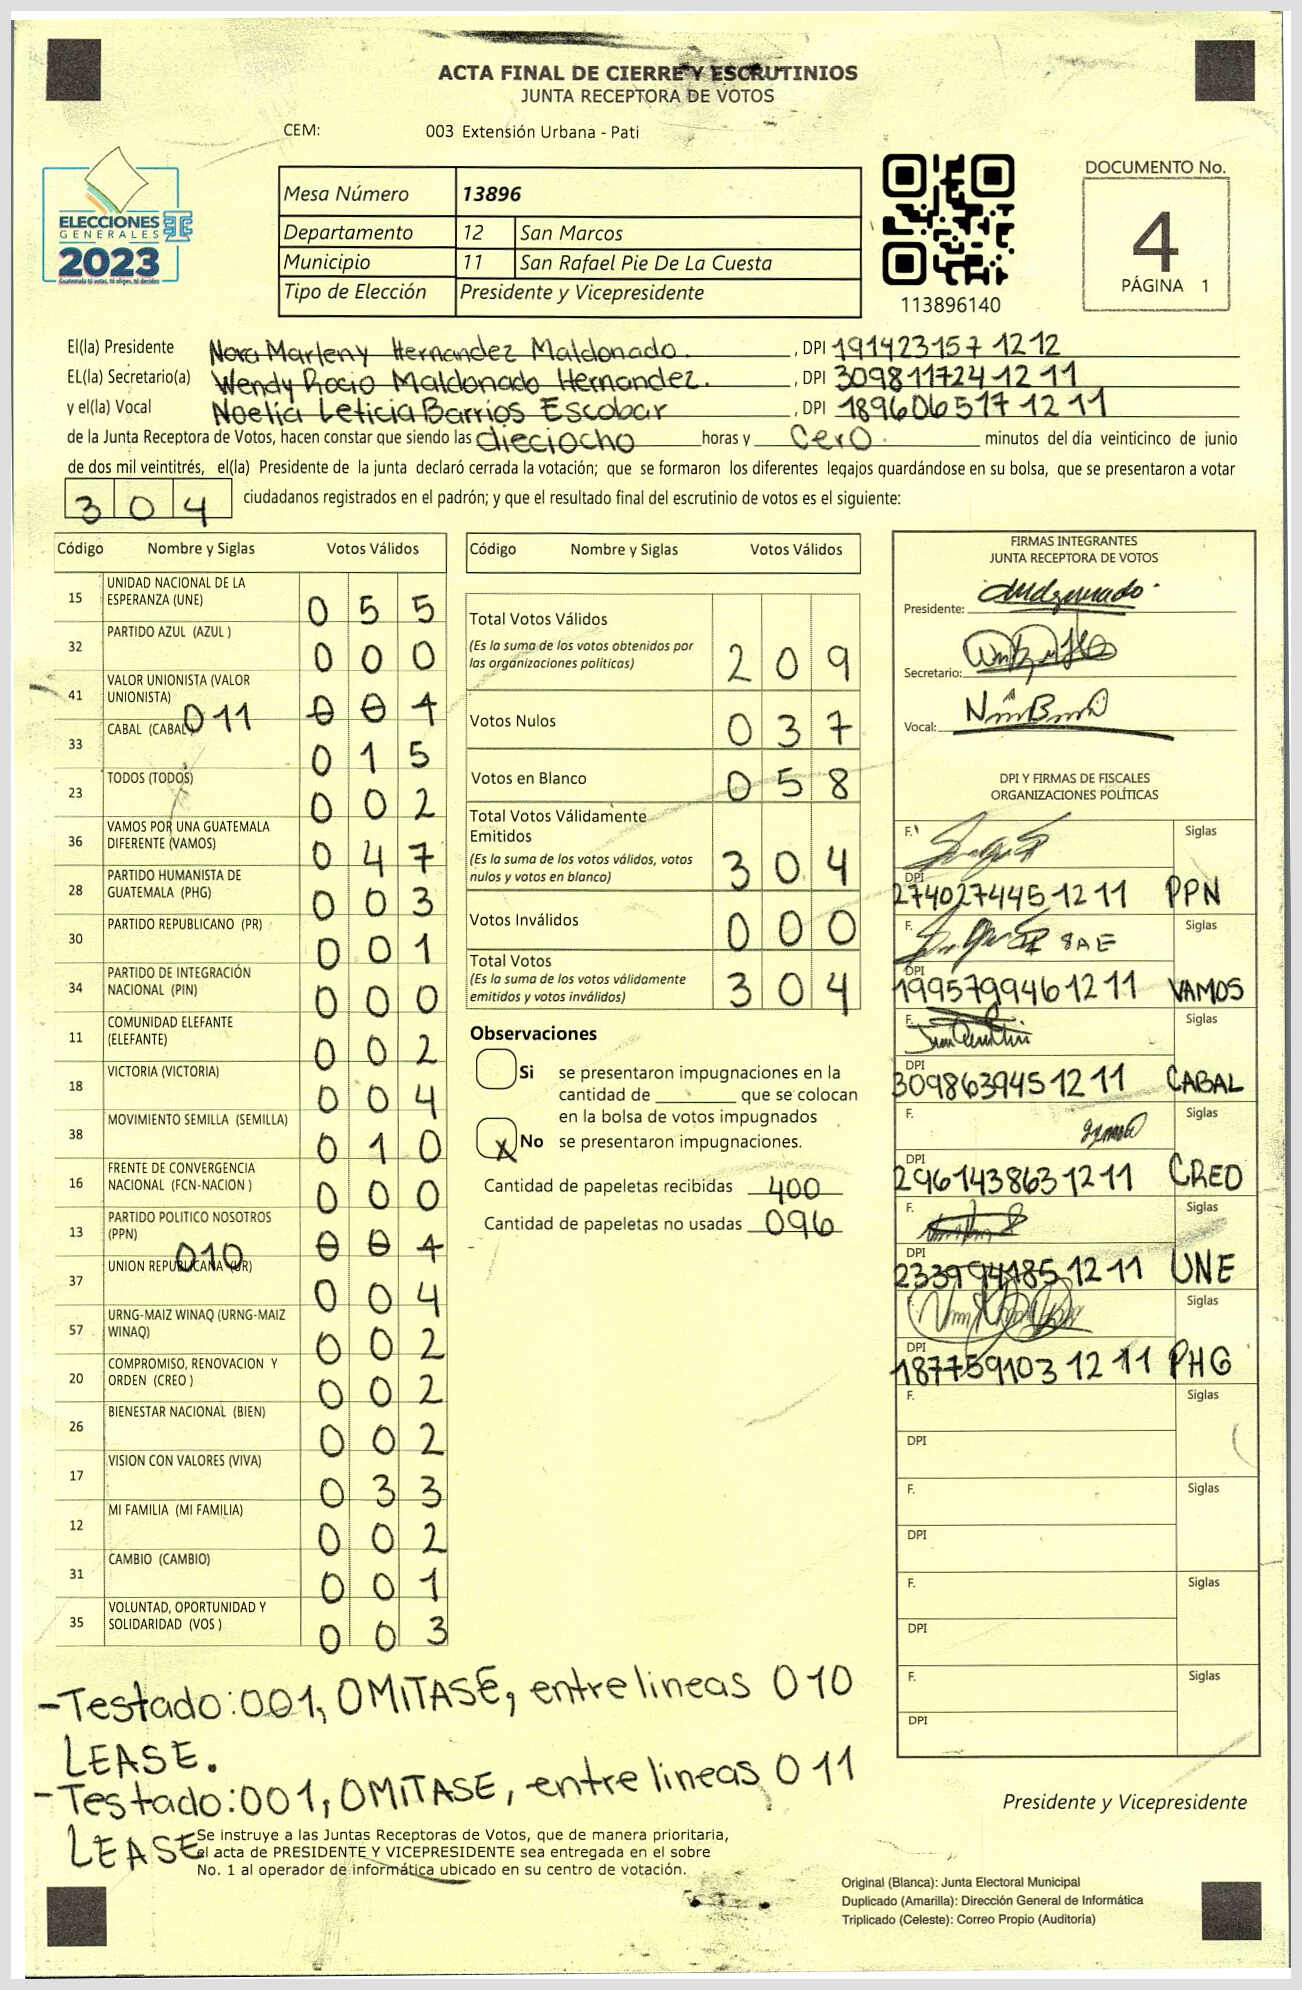 ACTA FINAL DE CIERRE Y ESCRUTINIOS
JUNTA RECEPTORA DE VOTOS
CEM: 003 Extensión Urbana - Pati
ELECCIONES
GENERALES
2023
Guatemala tú votas, tú eliges, tú decides
Mesa Número 13896
Departamento 12 San Marcos
Municipio 11 San Rafael Pie De La Cuesta
Tipo de Elección Presidente y Vicepresidente
113896140
DOCUMENTO No.
4
PÁGINA 1
El(la) Presidente Nora Marleny Hernandez Maldonado. , DPI 191423157 1212
EL(la) Secretario(a) Wendy Rocio Maldonado Hernandez. , DPI 309811724 12 11
y el(la) Vocal Noelia Leticia Barrios Escobar , DPI 189606517 12 11
de la Junta Receptora de Votos, hacen constar que siendo las dieciocho horas y cero. minutos del día veinticinco de junio
de dos mil veintitrés, el(la) Presidente de la junta declaró cerrada la votación; que se formaron los diferentes legajos guardándose en su bolsa, que se presentaron a votar
304 ciudadanos registrados en el padrón; y que el resultado final del escrutinio de votos es el siguiente:
Código Nombre y Siglas Votos Válidos
15 UNIDAD NACIONAL DE LA ESPERANZA (UNE) 055
32 PARTIDO AZUL (AZUL ) 000
41 VALOR UNIONISTA (VALOR UNIONISTA) 011 001
33 CABAL (CABAL) 015
23 TODOS (TODOS) 002
36 VAMOS POR UNA GUATEMALA DIFERENTE (VAMOS) 047
28 PARTIDO HUMANISTA DE GUATEMALA (PHG) 003
30 PARTIDO REPUBLICANO (PR) 001
34 PARTIDO DE INTEGRACIÓN NACIONAL (PIN) 000
11 COMUNIDAD ELEFANTE (ELEFANTE) 002
18 VICTORIA (VICTORIA) 004
38 MOVIMIENTO SEMILLA (SEMILLA) 010
16 FRENTE DE CONVERGENCIA NACIONAL (FCN-NACION ) 000
13 PARTIDO POLITICO NOSOTROS (PPN) 010 001
37 UNION REPUBLICANA (UR) 004
57 URNG-MAIZ WINAQ (URNG-MAIZ WINAQ) 002
20 COMPROMISO, RENOVACION Y ORDEN (CREO ) 002
26 BIENESTAR NACIONAL (BIEN) 002
17 VISION CON VALORES (VIVA) 033
12 MI FAMILIA (MI FAMILIA) 002
31 CAMBIO (CAMBIO) 001
35 VOLUNTAD, OPORTUNIDAD Y SOLIDARIDAD (VOS ) 003
Código Nombre y Siglas Votos Válidos
Total Votos Válidos 209
(Es la suma de los votos obtenidos por
las organizaciones políticas)
Votos Nulos 037
Votos en Blanco 058
Total Votos Válidamente
Emitidos 304
(Es la suma de los votos válidos, votos
nulos y votos en blanco)
Votos Inválidos 000
Total Votos 304
(Es la suma de los votos válidamente
emitidos y votos inválidos)
Observaciones
Si se presentaron impugnaciones en la
cantidad de ________ que se colocan
en la bolsa de votos impugnados
X No se presentaron impugnaciones.
Cantidad de papeletas recibidas 400
Cantidad de papeletas no usadas 096
FIRMAS INTEGRANTES
JUNTA RECEPTORA DE VOTOS
Presidente:
Secretario:
Vocal:
DPI Y FIRMAS DE FISCALES
ORGANIZACIONES POLÍTICAS
F. Siglas
DPI 274027445 12 11 PPN
F. Siglas
DPI 199579946 12 11 VAMOS
F. Siglas
DPI 309863945 12 11 CABAL
F. Siglas
DPI 296143863 12 11 CREO
F. Siglas
DPI 233994185 12 11 UNE
F. Siglas
DPI 187759103 12 11 PHG
F. Siglas
DPI
F. Siglas
DPI
F. Siglas
DPI
F. Siglas
DPI
-Testado: 001, OMITASE, entre lineas 010
LEASE.
-Testado: 001, OMITASE, entre lineas 011
LEASE
Se instruye a las Juntas Receptoras de Votos, que de manera prioritaria,
el acta de PRESIDENTE Y VICEPRESIDENTE sea entregada en el sobre
No. 1 al operador de informática ubicado en su centro de votación.
Presidente y Vicepresidente
Original (Blanca): Junta Electoral Municipal
Duplicado (Amarilla): Dirección General de Informática
Triplicado (Celeste): Correo Propio (Auditoría)